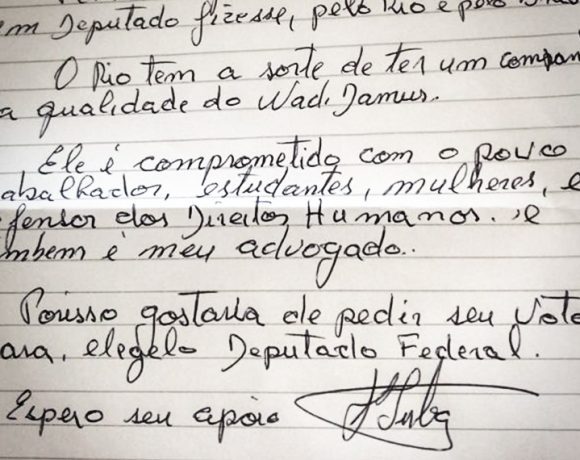 m Deputado fizesse, pelo Rio e pelo
O Rio tem a sorte de ter um compan
a qualidade do Wadi Damus.
Ele é comprometido com o povo
abalhador, estudantes, mulheres, e
fensor dos Direitos Humanos. e
mbem é meu advogado.
Porisso gostaria de pedir seu Voto
ara, elegelo Deputado Federal.
Espero seu apoio
Lula